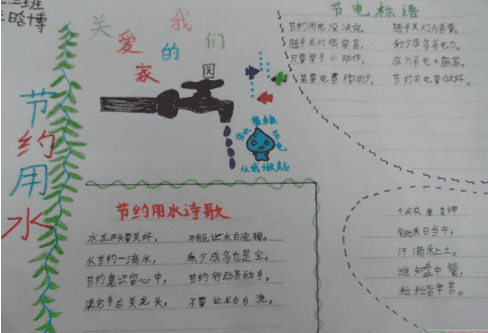 三班
晗博
关爱我们
的家园
节约用水
节电标语
节约用电没决窍， 随手关灯为首要。
随手关灯很容易， 积少成多省电力。
只要举手小动作， 成为省电大赢家。
若要电费缴的少， 节约用电要做好。
从我做起
节约用水诗歌
水龙头要关好， 不能让水白流掉。
水节约一滴水， 积少成多也是宝。
节约意识留心中， 节约行动务动手。
洗完手右关龙头， 不要让水白白流。
锄禾日当午，
汗滴禾下土。
谁知盘中餐，
粒粒皆辛苦。